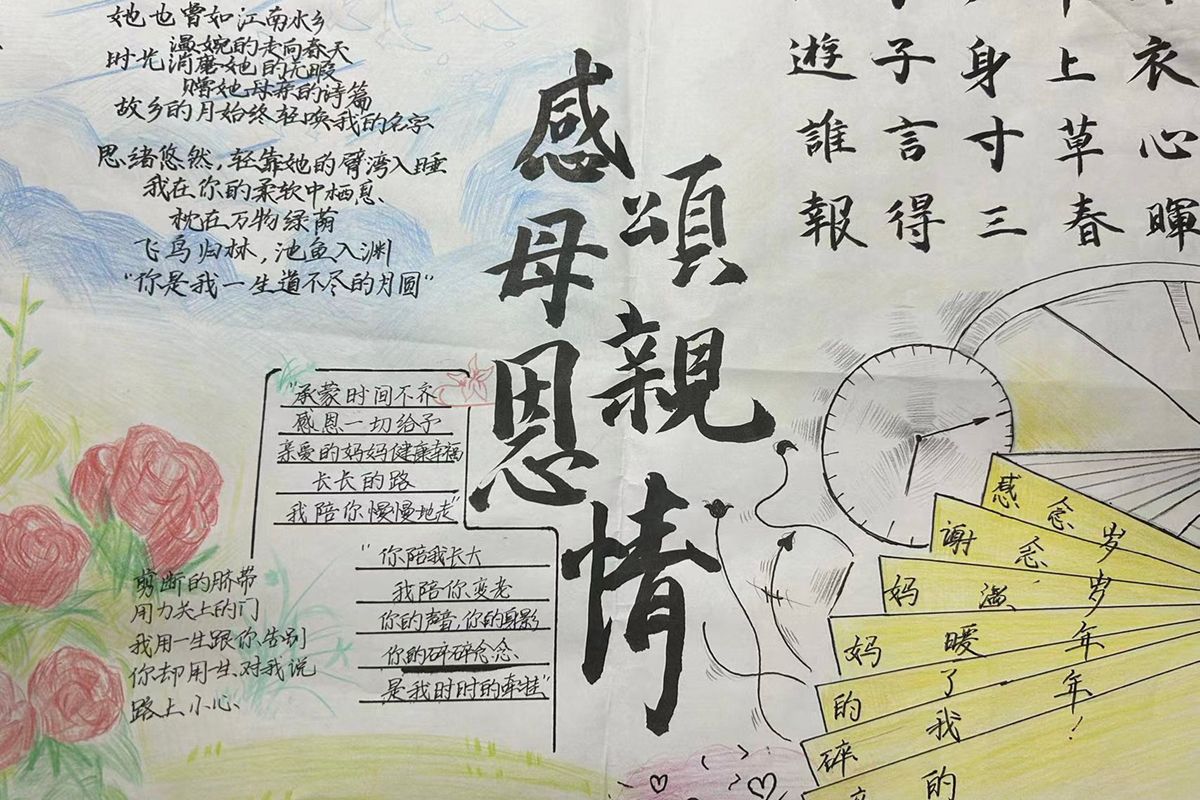 她也曾如江南水乡
温婉的走向春天
时光消磨她的无暇
赠她母亲的诗篇
故乡的月始终轻唤我的名字
思绪悠然,轻靠她的臂湾入睡
我在你的柔软中栖息
枕在万物绿荫
飞鸟归林,池鱼入渊
“你是我一生道不尽的月圆“
感母恩
頌親情
遊子身上衣
誰言寸草心
報得三春暉
“承蒙时间不齐
感恩一切给予
亲爱的妈妈健康幸福
长长的路
我陪你慢慢地走”
“你陪我长大
我陪你变老
你的声音,你的身影
你的碎碎念念
是我时时的牵挂”
剪断的脐带
用力关上的门
我用一生跟你告别
你却用生对我说
路上小心
感谢妈妈的碎
念念,温暖了我的
岁岁年年!